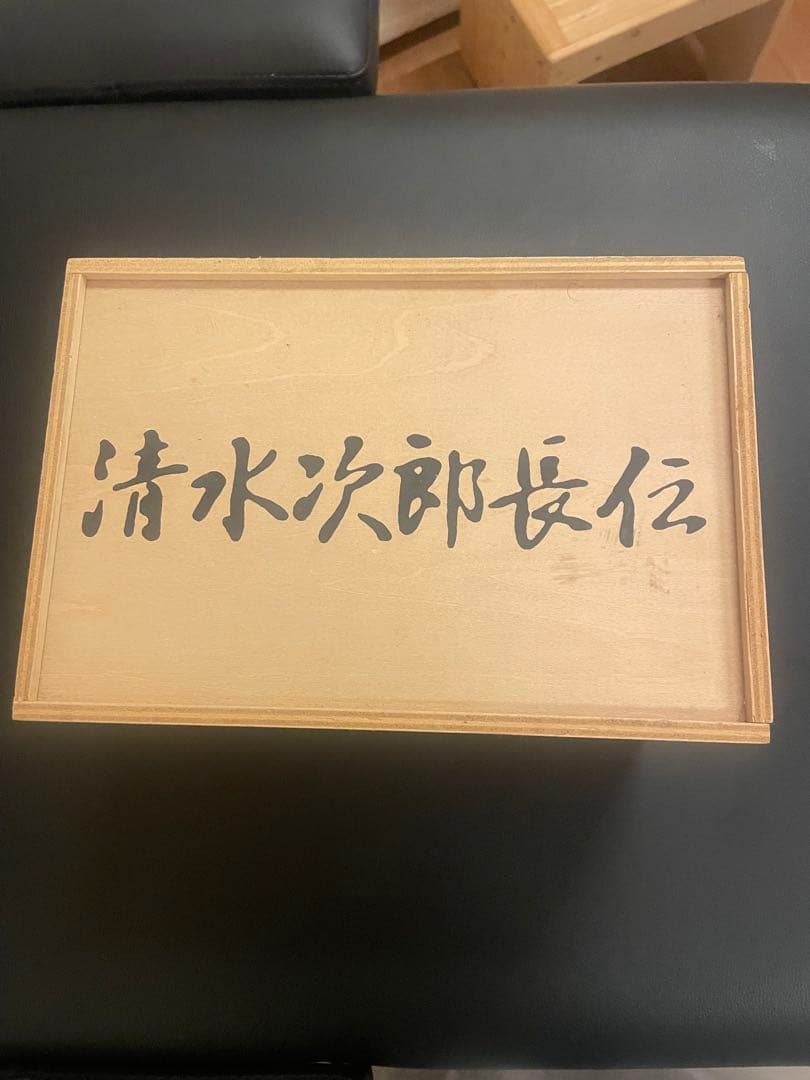 清水次郎長伝